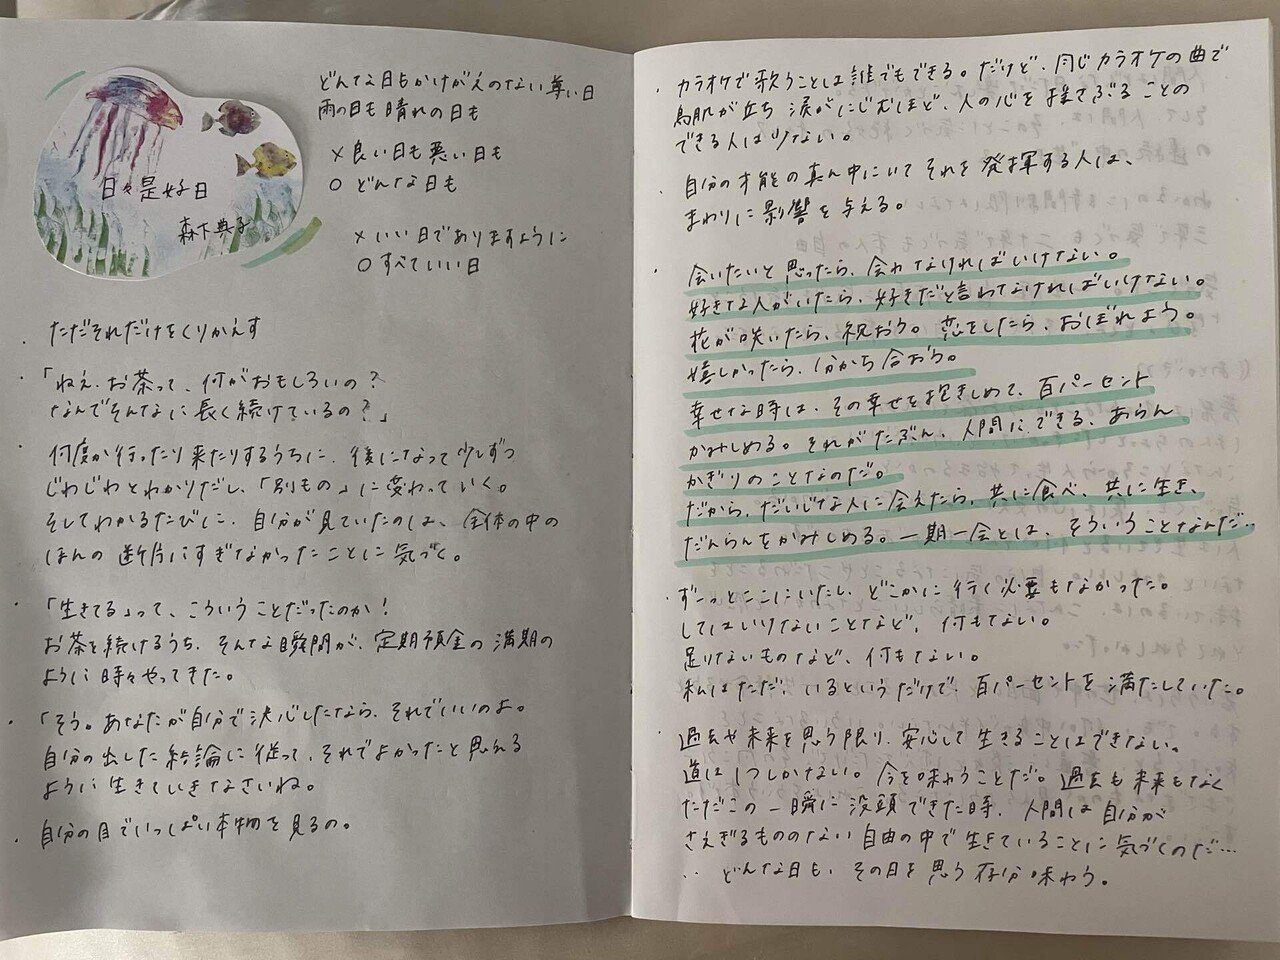 日々是好日
森下典子
どんな日もかけがえのない尊い日
雨の日も晴れの日も
× 良い日も悪い日も
○ どんな日も
× いい日でありますように
○ すべていい日
・ただそれだけをくりかえす
・「ねえ、お茶って、何がおもしろいの？
なんでそんなに長く続けているの？」
・何度か行ったり来たりするうちに、後になって少しずつ
じわじわとわかりだし、「別もの」に変わっていく。
そしてわかるたびに、自分が見ていたのは、全体の中の
ほんの断片にすぎなかったことに気づく。
・「生きてる」って、こういうことだったのか！
お茶を続けるうち、そんな瞬間が、定期預金の満期の
ように時々やってきた。
・「そう。あなたが自分で決心したなら、それでいいのよ。
自分の出した結論に従って、それでよかったと思える
ように生きていきなさいね。
・自分の目でいっぱい本物を見るの。
・カラオケで歌うことは誰でもできる。だけど、同じカラオケの曲で
鳥肌が立ち 涙がにじむほど、人の心を揺さぶることの
できる人は少ない。
・自分の才能の真ん中にいてそれを発揮する人は、
まわりに影響を与える。
・会いたいと思ったら、会わなければいけない。
好きな人がいたら、好きだと言わなければいけない。
花が咲いたら、祝おう。恋をしたら、おぼれよう。
嬉しかったら、分かち合おう。
幸せな時は、その幸せを抱きしめて、百パーセント
かみしめる。それがたぶん、人間にできる、あらん
かぎりのことなのだ。
だから、だいじな人に会えたら、共に食べ、共に生き、
だんらんをかみしめる。一期一会とは、そういうことなんだ…
・ずーっとここにいたし、どこかに行く必要もなかった。
してはいけないことなど、何もない。
足りないものなど、何もない。
私はただ、いるというだけで、百パーセントを満たしていた。
・過去や未来を思う限り、安心して生きることはできない。
道は1つしかない。今を味わうことだ。過去も未来もなく
ただこの一瞬に没頭できた時、人間は自分が
さえぎるもののない自由の中で生きていることに気づくのだ…
‥ どんな日も、その日を思う存分味わう。